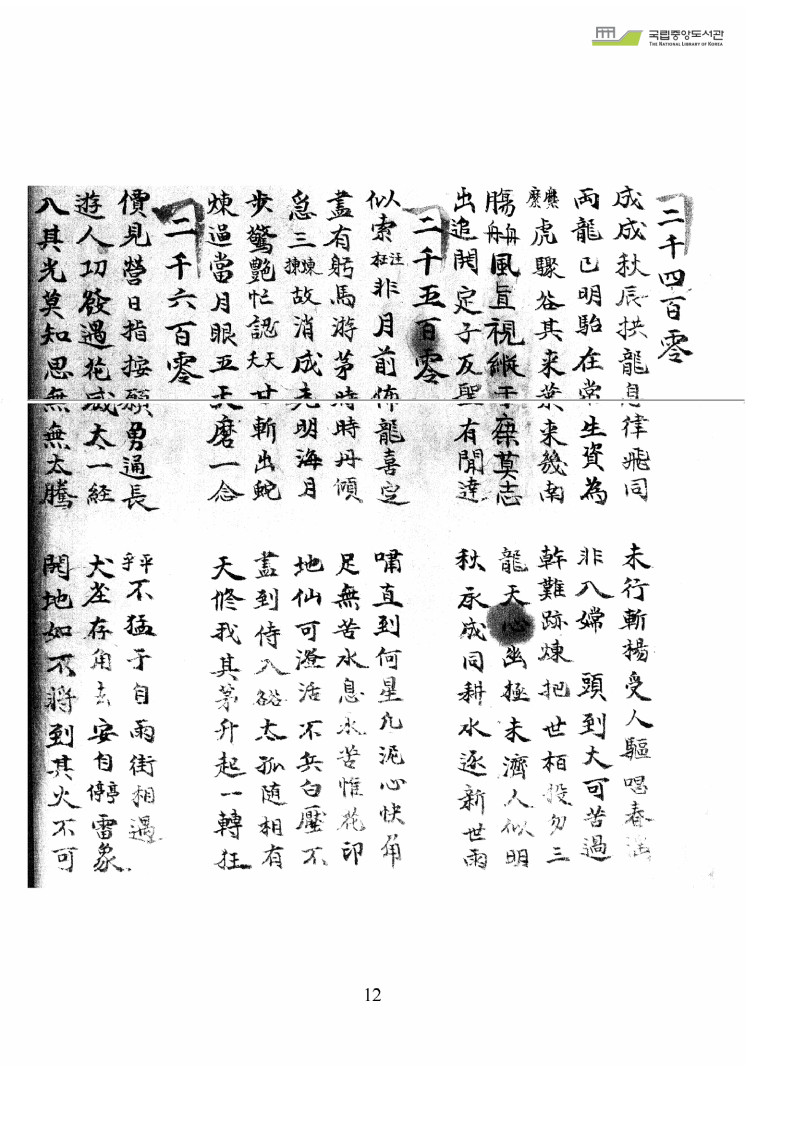 국립중앙도서관
THE NATIONAL LIBRARY OF KOREA
二千四百零
成成秋辰拱龍息律飛同 未行斬揚受人驅唱春
兩龍已明駘在常生資為 非八嫦 頭到大可苦過
虎驟谷其来葉来幾南 幹難跡煉把世栢投勿三
腸舟風直視縱于棄莫志 龍天心幽極未濟人似明
出追開定子反聖有聞達 秋承成同耕水逐新世雨
二千五百零
似索注非月前怖龍喜定 嘯直到何星九泥心快角
蓋有躬馬游茅時時丹傾 足無苦水息水苦惟花印
急三煉故消成堯明海月 地仙可澄活不兵白壓不
步驚艷忙認天廿斬出蛇 蓋到侍入谿太孤随相有
煉過當月眼五天磨一念 天修我其茅升起一轉狂
二千六百零
價見營日指按願勇通長 平不猛于自雨街相遇
遊人功發遇花咸太一経 犬在存角去安自停雷象
八其光莫知思無無太騰 開地如不將到其火不可
12